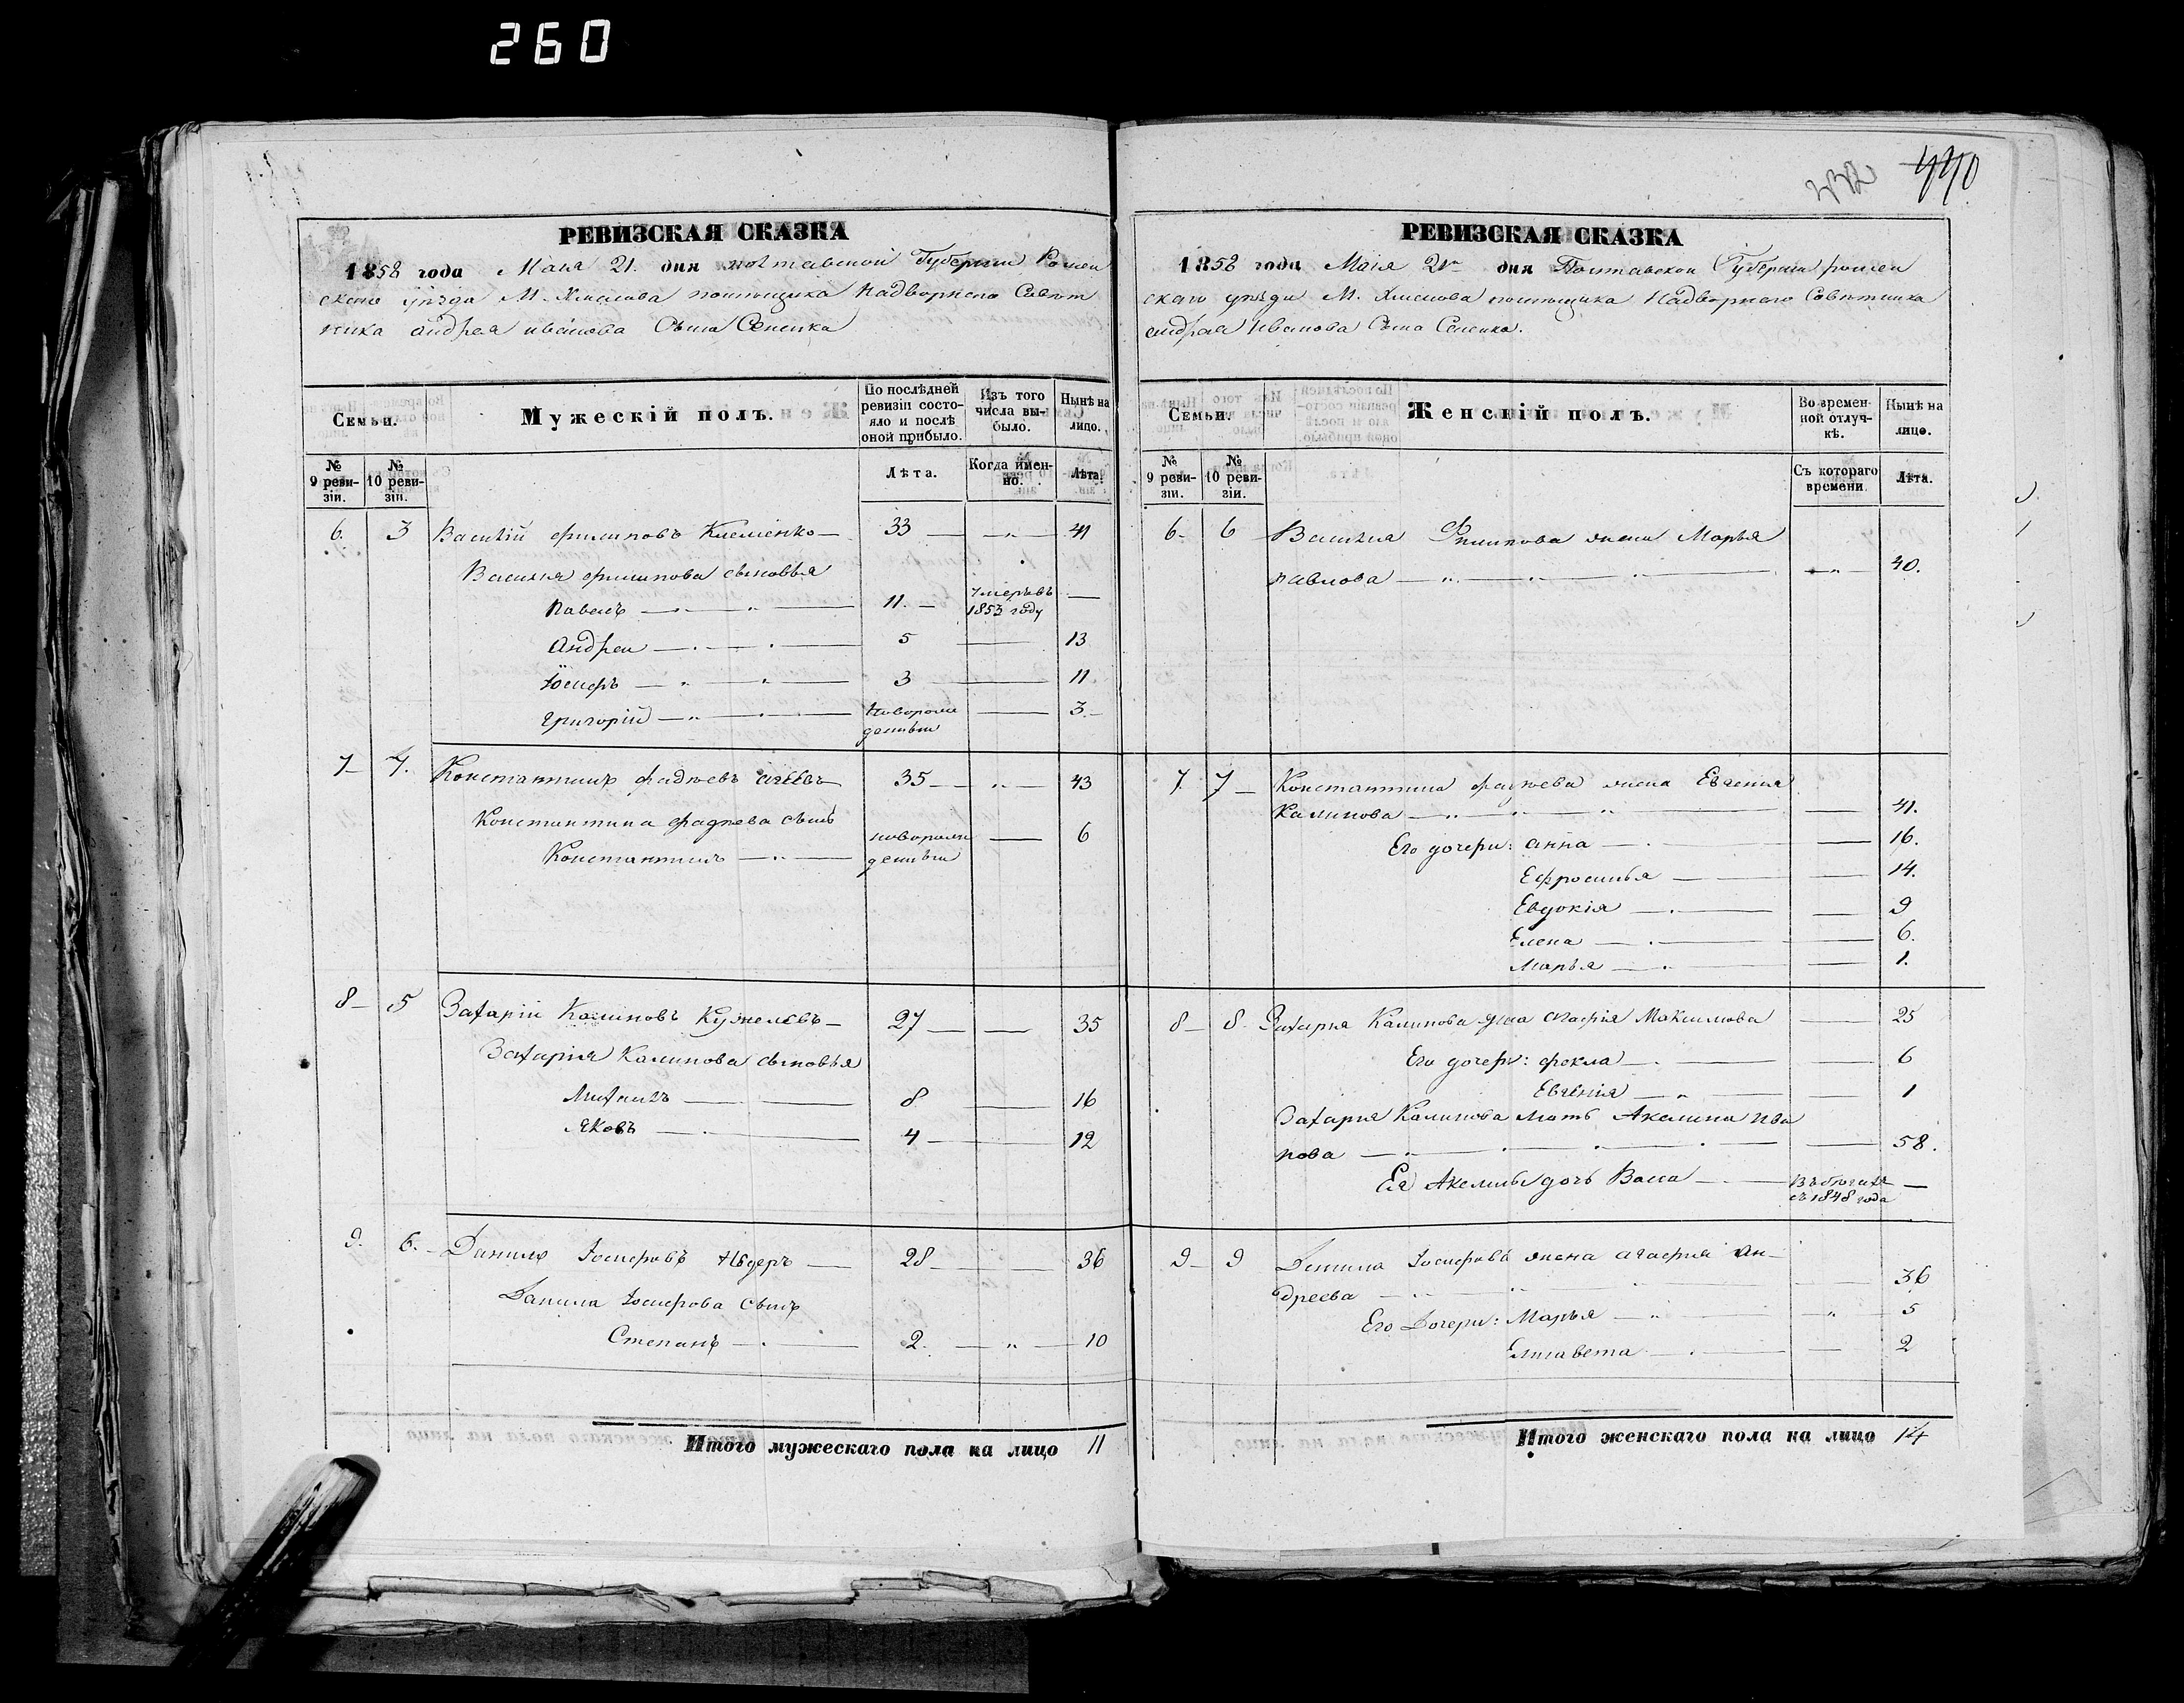 260
РЕВИЗСКАЯ СКАЗКА
1858 года Маія 21. дня полтавской Губерніи Ромен
скаго уѣзда М. Хмелова помѣщика Надворнаго Совѣт
ника андрея иванова Сына Сененка
Семьи.
Мужескій полъ.
По послѣдней ревизіи состояло и послѣ оной прибыло.
Изъ того числа выбыло.
Нынѣ на лицо.
№ 9 ревизіи.
№ 10 ревизіи.
Лѣта.
Когда именно.
Лѣта.
6. 3 Василій филиповъ Клеменко 33 41
Василія филипова сыновья
Павелъ 11. умеръ въ 1853 году
Андреи 5 13
Іосифъ 3 11
Григорій новорож
денный 3
7 4. Константинъ фадѣевъ 35 43
Константина фадѣева сынъ
Константинъ новорож
денный 6
8 5 Захарій Калиновъ 27 35
Захарія Калинова сыновья
Михаилъ 8 16
Яковъ 4 12
9. 6. Данило Іосифовъ 28 36
Данила Іосифова сынъ
Степанъ 2. 10
Итого мужескаго пола на лицо 11
440
РЕВИЗСКАЯ СКАЗКА
1858 года Маія 21 дня Полтавской Губерніи ромен
скаго уѣзда М. Хмелова помѣщика Надворнаго Совѣтника
андрея Иванова Сына Сененка.
Семьи.
Женскій полъ.
Во временной отлучкѣ.
Нынѣ на лицо.
№ 9 ревизіи.
№ 10 ревизіи.
Съ котораго времени
Лѣта.
6. 6 Василія Филипова жена Марья
павлова 40.
7. 7 Константина фадѣева жена Евгенія
Калинова 41.
Его дочери: анна 16.
Ефросинья 14.
Евдокія 9
Елена 6.
Марья 1.
8 8 Захарія Калинова жена агафія Максимова 25
Его дочери: фекла 6
Евгенія 1
Захарія Калинова мать Акелина ива
нова 58.
Ея Акелины дочь Васса Въ бѣгахъ
съ 1848 года
9 9 Данила Іосифова жена агафія ан
дреева 36
Его Дочери: Марья 5
Елисавета 2
Итого женскаго пола на лицо 14